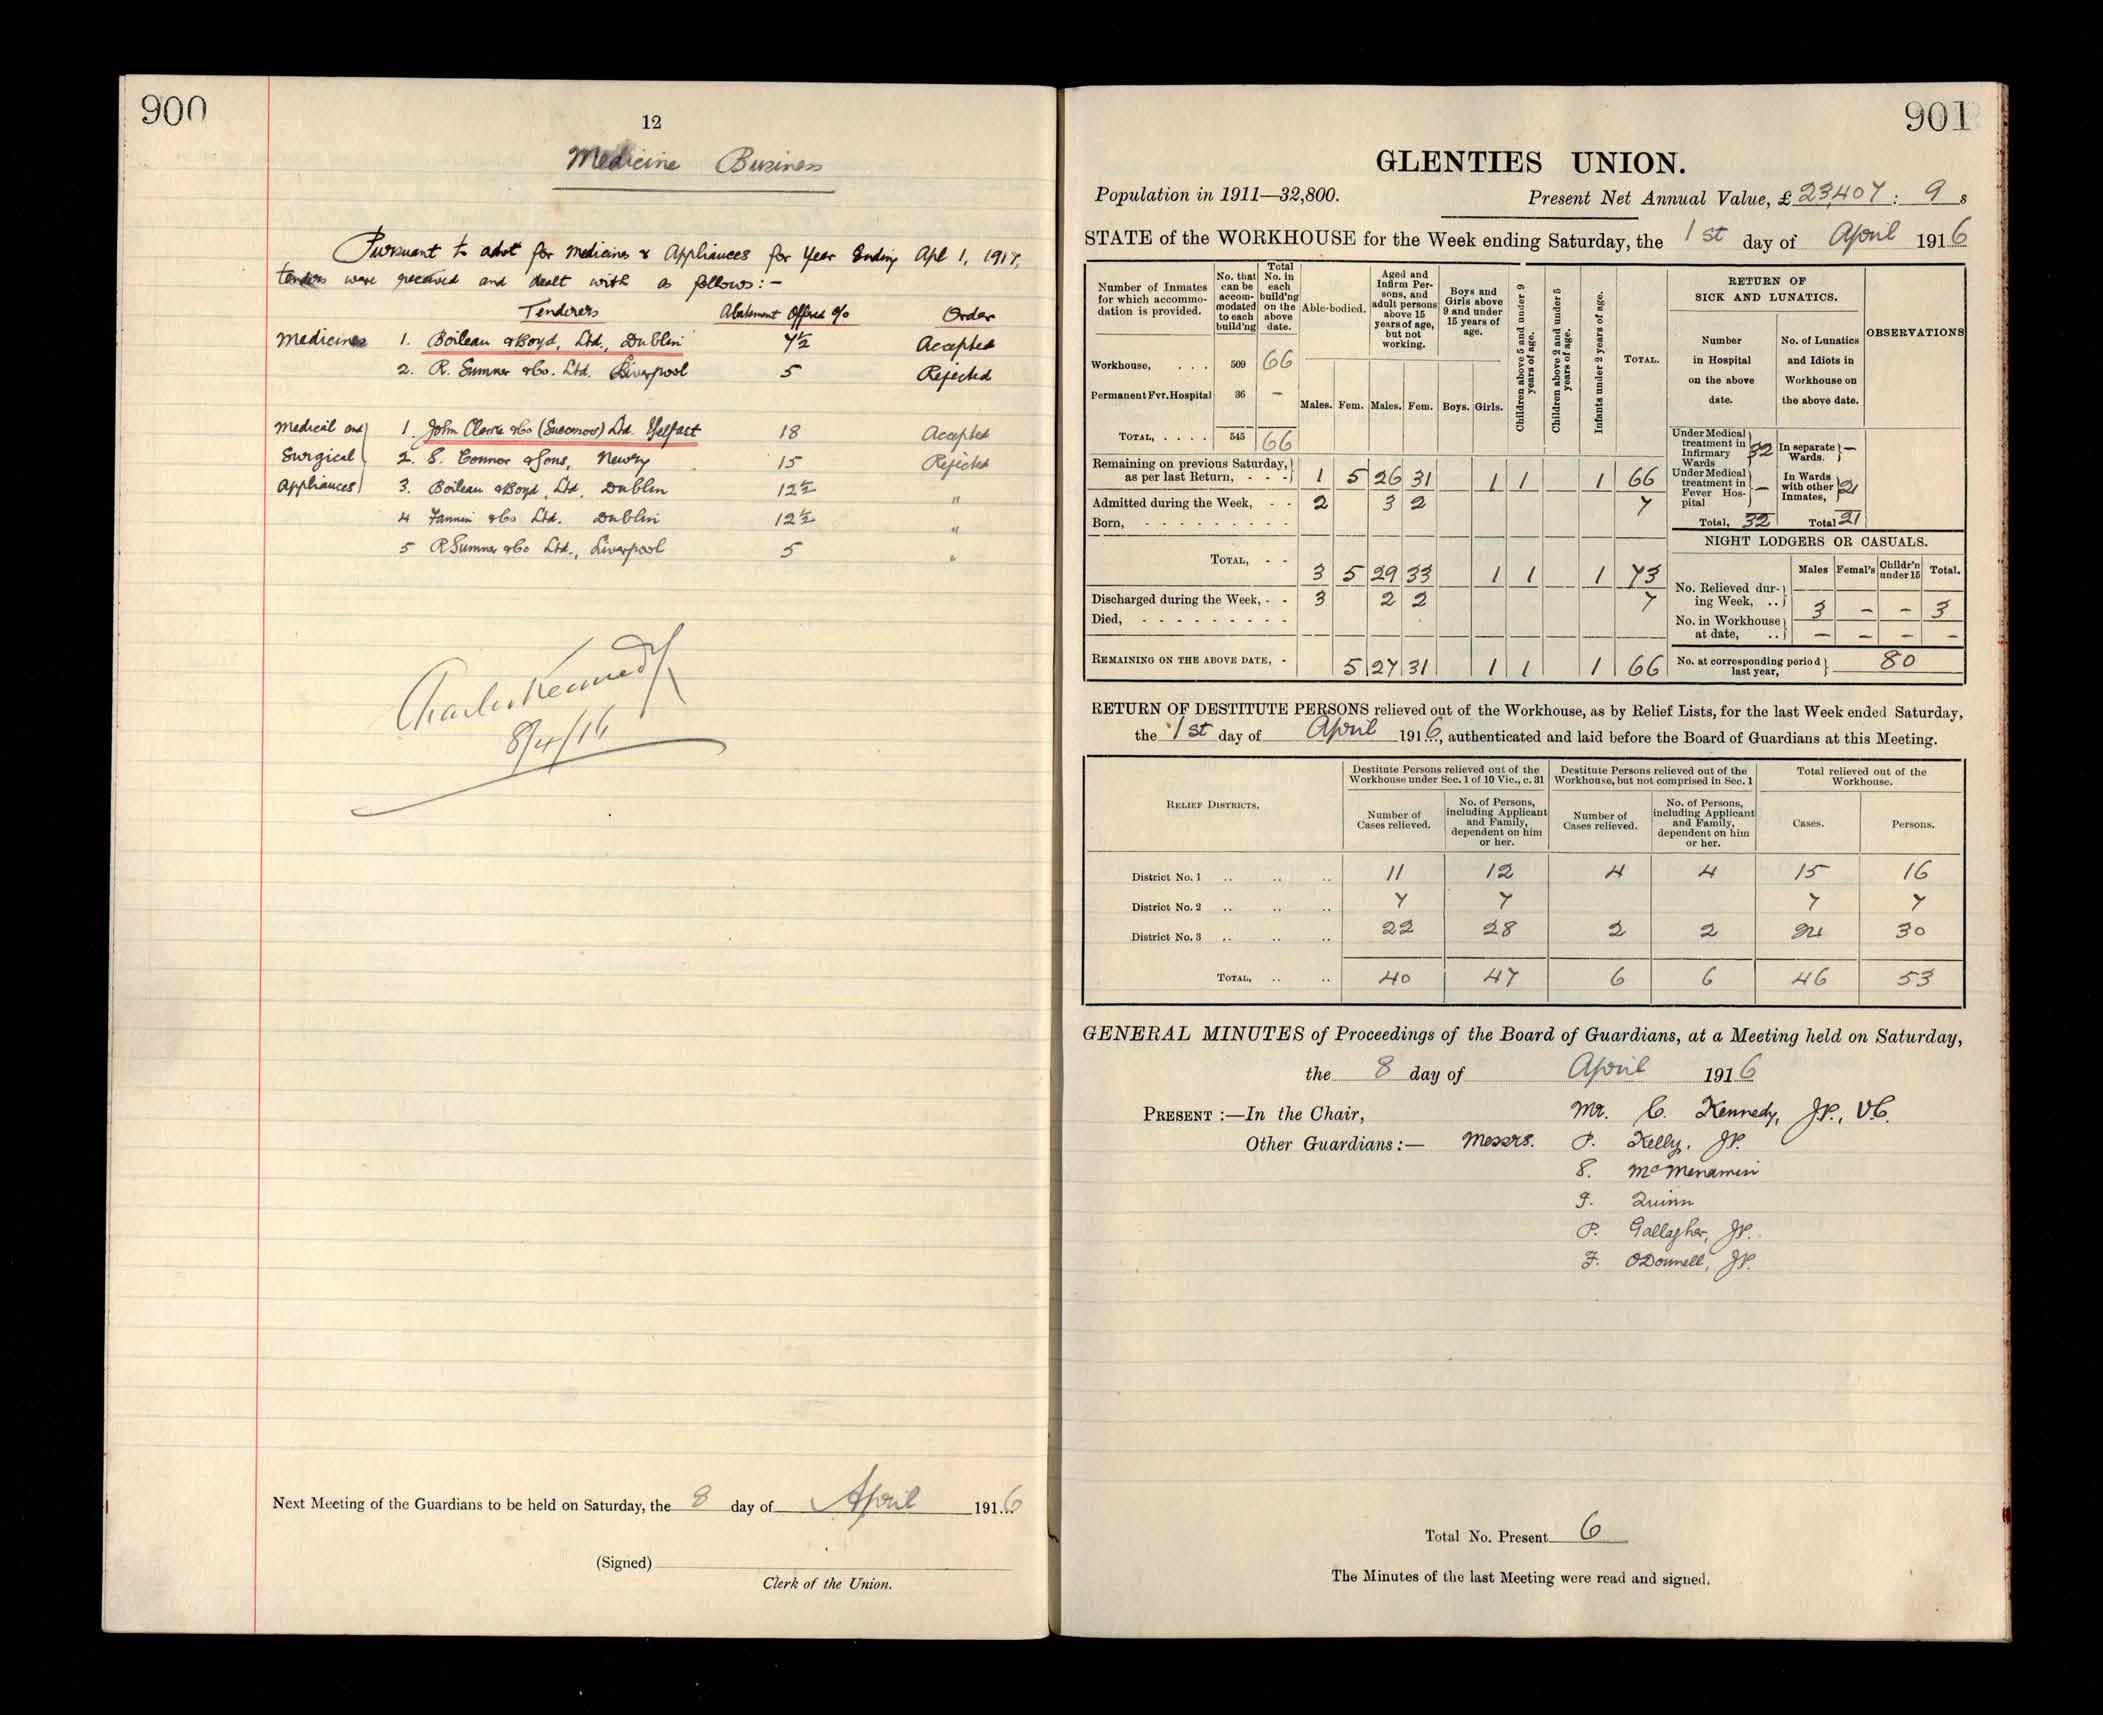 900
12
Medicine Business
Pursuant to advt for Medicines & Appliances for Year Ending Apl 1, 1917,
tenders were received and dealt with as follows:-
Tenderers Abatement Offered % Order
Medicines 1. Boileau & Boyd, Ltd., Dublin 7½ Accepted
2. R. Sumner & Co. Ltd. Liverpool 5 Rejected
Medical and 1. John Clarke & Co (Successors) Ltd. Belfast 18 Accepted
Surgical 2. S. Connor & Sons, Newry 15 Rejected
Appliances 3. Boileau & Boyd, Ltd, Dublin 12½ "
4 Fannin & Co Ltd. Dublin 12½ "
5 R Sumner & Co Ltd., Liverpool 5 "
Charles Kennedy
8/4/16
Next Meeting of the Guardians to be held on Saturday, the 8 day of April 1916
(Signed)
Clerk of the Union.
901
GLENTIES UNION.
Population in 1911—32,800. Present Net Annual Value, £23,407 : 9 s
STATE of the WORKHOUSE for the Week ending Saturday, the 1st day of April 1916
Number of Inmates for which accommodation is provided.
No. that can be accommodated to each build'ng
Total No. in each build'ng on the above date.
Able-bodied.
Aged and Infirm Persons, and adult persons above 15 years of age, but not working.
Boys and Girls above 9 and under 15 years of age.
Children above 5 and under 9 years of age.
Children above 2 and under 5 years of age.
Infants under 2 years of age.
TOTAL.
RETURN OF SICK AND LUNATICS.
OBSERVATIONS
Number in Hospital on the above date.
No. of Lunatics and Idiots in Workhouse on the above date.
Workhouse, . . . 509 66
Permanent Fvr. Hospital 36 —
Males. Fem. Males. Fem. Boys. Girls.
TOTAL, . . . . 545 66
Remaining on previous Saturday, as per last Return, - - - 1 5 26 31 1 1 1 66
Admitted during the Week, - - 2 3 2 7
Born, - - - - - - - - -
TOTAL, - - 3 5 29 33 1 1 1 73
Discharged during the Week, - - 3 2 2 7
Died, - - - - - - - - -
REMAINING ON THE ABOVE DATE, - 5 27 31 1 1 1 66
Under Medical treatment in Infirmary Wards 32 In separate Wards. —
Under Medical treatment in Fever Hospital — In Wards with other Inmates, 21
Total, 32 Total 21
NIGHT LODGERS OR CASUALS.
Males Femal's Childr'n under 15 Total.
No. Relieved during Week, .. 3 — — 3
No. in Workhouse at date, .. — — — —
No. at corresponding period last year, 80
RETURN OF DESTITUTE PERSONS relieved out of the Workhouse, as by Relief Lists, for the last Week ended Saturday,
the 1st day of April 1916, authenticated and laid before the Board of Guardians at this Meeting.
RELIEF DISTRICTS.
Destitute Persons relieved out of the Workhouse under Sec. 1 of 10 Vic., c. 31
Destitute Persons relieved out of the Workhouse, but not comprised in Sec. 1
Total relieved out of the Workhouse.
Number of Cases relieved.
No. of Persons, including Applicant and Family, dependent on him or her.
Number of Cases relieved.
No. of Persons, including Applicant and Family, dependent on him or her.
Cases.
Persons.
District No. 1 .. .. .. 11 12 4 4 15 16
District No. 2 .. .. .. 7 7 7 7
District No. 3 .. .. .. 22 28 2 2 24 30
TOTAL, .. .. 40 47 6 6 46 53
GENERAL MINUTES of Proceedings of the Board of Guardians, at a Meeting held on Saturday,
the 8 day of April 1916
PRESENT :—In the Chair, Mr. C. Kennedy, J.P., V.C.
Other Guardians :— Messrs. P. Kelly, JP.
S. McMenamin
J. Quinn
P. Gallagher, JP.
F. O'Donnell, JP.
Total No. Present 6
The Minutes of the last Meeting were read and signed.